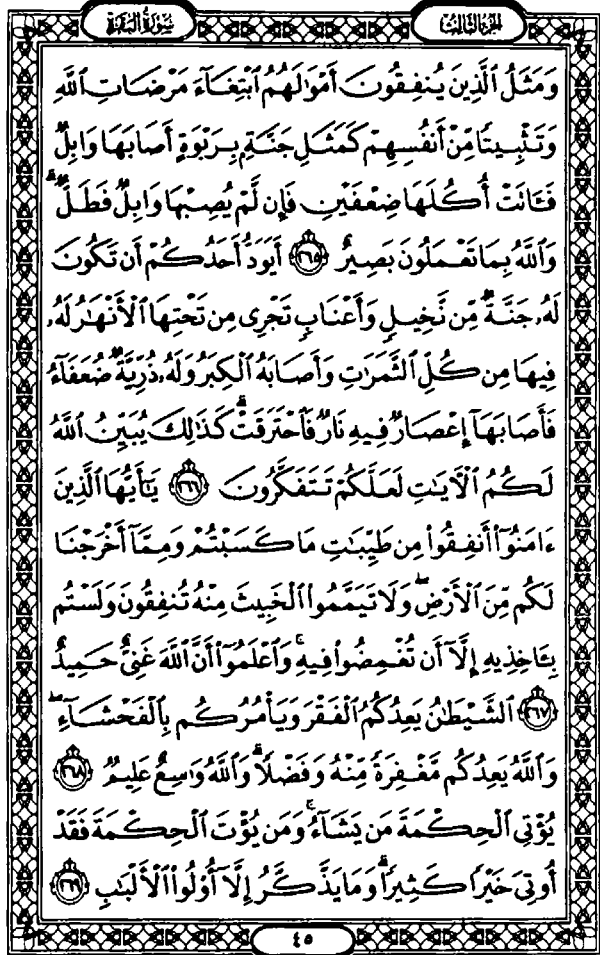 سُورَةُ البَقَرَةِ
الجزء الثالث
وَمَثَلُ ٱلَّذِينَ يُنفِقُونَ أَمْوَٰلَهُمُ ٱبْتِغَآءَ مَرْضَاتِ ٱللَّهِ
وَتَثْبِيتًا مِّنْ أَنفُسِهِمْ كَمَثَلِ جَنَّةٍۭ بِرَبْوَةٍ أَصَابَهَا وَابِلٌ
فَـَٔاتَتْ أُكُلَهَا ضِعْفَيْنِ فَإِن لَّمْ يُصِبْهَا وَابِلٌ فَطَلٌّ ۗ
وَٱللَّهُ بِمَا تَعْمَلُونَ بَصِيرٌ ٢٦٥ أَيَوَدُّ أَحَدُكُمْ أَن تَكُونَ
لَهُۥ جَنَّةٌ مِّن نَّخِيلٍ وَأَعْنَابٍ تَجْرِى مِن تَحْتِهَا ٱلْأَنْهَٰرُ لَهُۥ
فِيهَا مِن كُلِّ ٱلثَّمَرَٰتِ وَأَصَابَهُ ٱلْكِبَرُ وَلَهُۥ ذُرِّيَّةٌ ضُعَفَآءُ
فَأَصَابَهَآ إِعْصَارٌ فِيهِ نَارٌ فَٱحْتَرَقَتْ ۗ كَذَٰلِكَ يُبَيِّنُ ٱللَّهُ
لَكُمُ ٱلْـَٔايَٰتِ لَعَلَّكُمْ تَتَفَكَّرُونَ ٢٦٦ يَـٰٓأَيُّهَا ٱلَّذِينَ
ءَامَنُوٓا۟ أَنفِقُوا۟ مِن طَيِّبَٰتِ مَا كَسَبْتُمْ وَمِمَّآ أَخْرَجْنَا
لَكُم مِّنَ ٱلْأَرْضِ ۖ وَلَا تَيَمَّمُوا۟ ٱلْخَبِيثَ مِنْهُ تُنفِقُونَ وَلَسْتُم
بِـَٔاخِذِيهِ إِلَّآ أَن تُغْمِضُوا۟ فِيهِ ۚ وَٱعْلَمُوٓا۟ أَنَّ ٱللَّهَ غَنِىٌّ حَمِيدٌ
٢٦٧ ٱلشَّيْطَٰنُ يَعِدُكُمُ ٱلْفَقْرَ وَيَأْمُرُكُم بِٱلْفَحْشَآءِ ۖ
وَٱللَّهُ يَعِدُكُم مَّغْفِرَةً مِّنْهُ وَفَضْلًا ۗ وَٱللَّهُ وَٰسِعٌ عَلِيمٌ ٢٦٨
يُؤْتِى ٱلْحِكْمَةَ مَن يَشَآءُ ۚ وَمَن يُؤْتَ ٱلْحِكْمَةَ فَقَدْ
أُوتِىَ خَيْرًا كَثِيرًا ۗ وَمَا يَذَّكَّرُ إِلَّآ أُو۟لُوا۟ ٱلْأَلْبَٰبِ ٢٦٩
٤٥